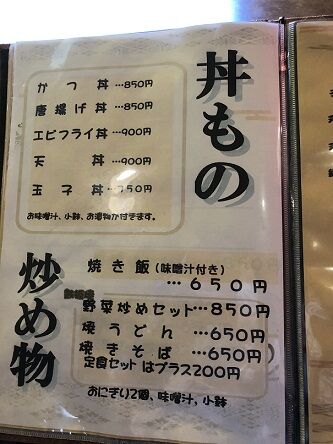 丼もの
かつ丼…850円
唐揚げ丼…850円
エビフライ丼…900円
天丼…900円
玉子丼…750円
お味噌汁、小鉢、お漬物が付きます。
炒め物
焼き飯(味噌汁付き)
…650円
野菜炒めセット…850円
焼うどん…650円
焼きそば…650円
定食セットはプラス200円
おにぎり2個、味噌汁、小鉢